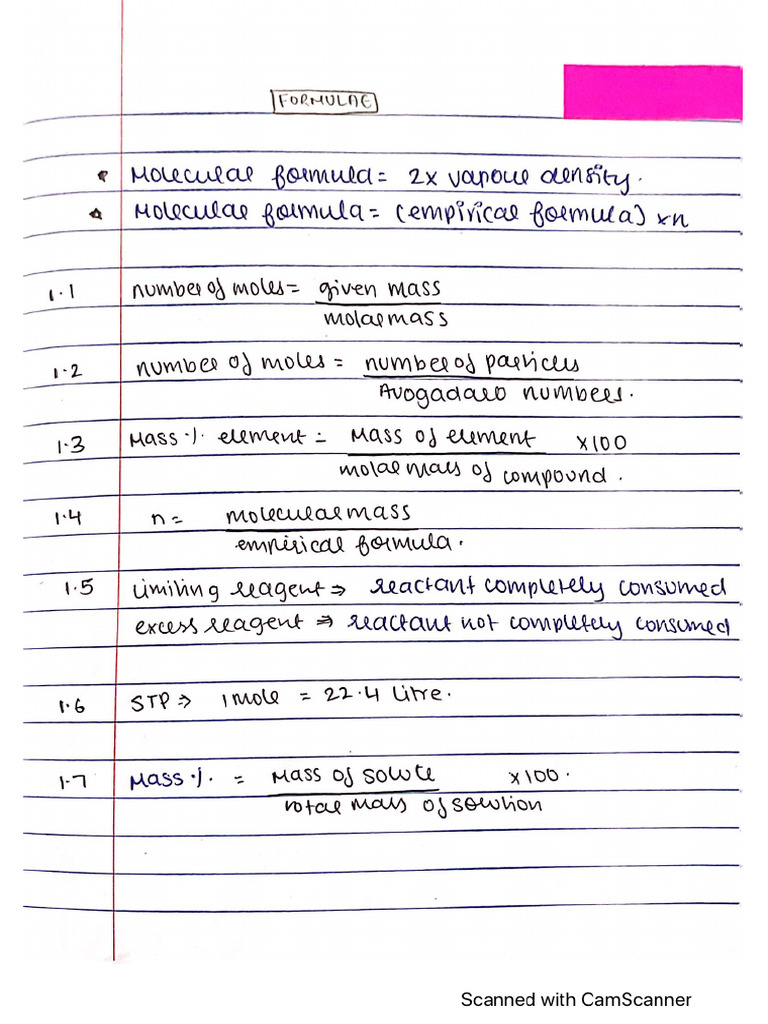 FORMULAE
Molecular formula = 2x vapour density.
Molecular formula = (empirical formula) xn
1.1 number of moles = given mass
molar mass
1.2 number of moles = number of particles
Avogadaro numbers.
1.3 Mass % element = Mass of element x100
molar mass of compound.
1.4 n = molecular mass
empirical formula.
1.5 Limiting reagent ⇒ reactant completely consumed
excess reagent ⇒ reactant not completely consumed
1.6 STP ⇒ 1 mole = 22.4 Litre.
1.7 Mass % = Mass of solute x100.
total mass of solution
Scanned with CamScanner